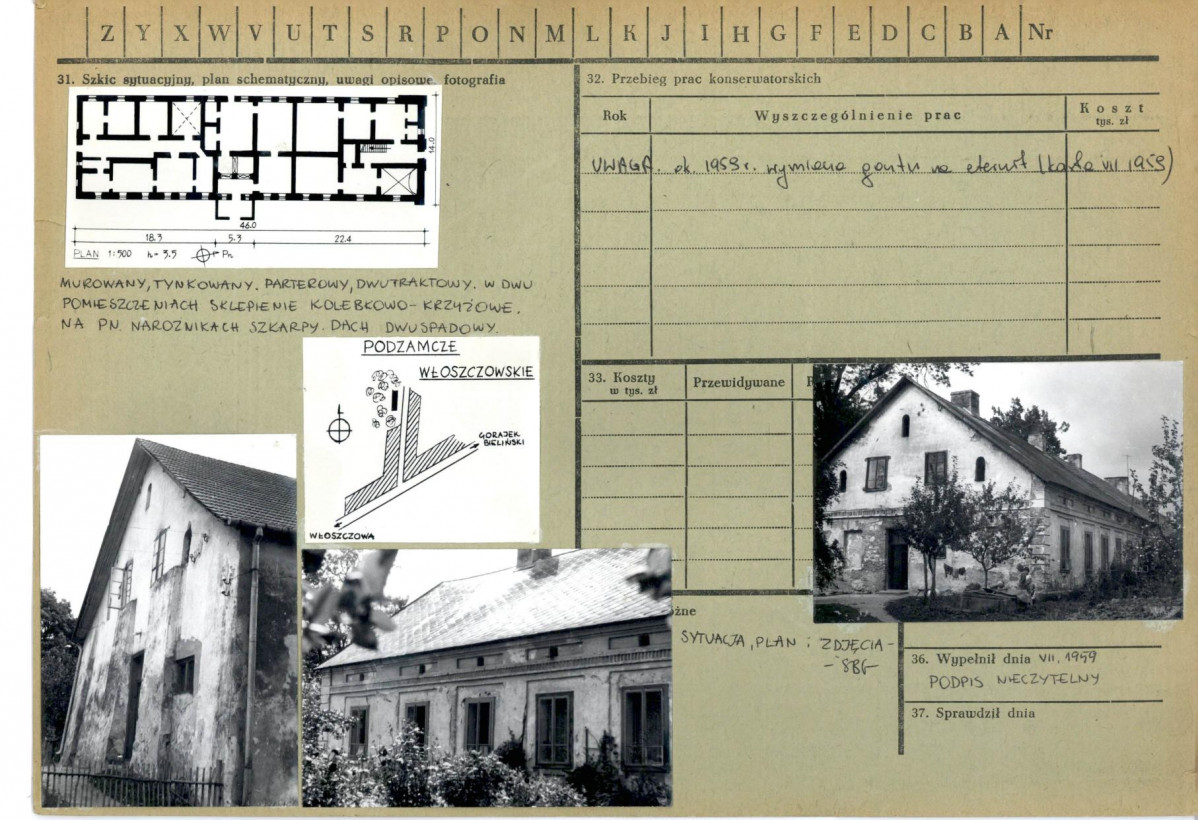 Z Y X W V U T S R P O N M L K J I H G F E D C B A Nr
31. Szkic sytuacyjny, plan schematyczny, uwagi opisowe, fotografia
14.0
46.0
18.3 5.3 22.4
PLAN 1:500 h= 3.5 Pn.
MUROWANY, TYNKOWANY. PARTEROWY, DWUTRAKTOWY. W DWU
POMIESZCZENIACH SKLEPIENIE KOLEBKOWO-KRZYŻOWE.
NA PN. NAROŻNIKACH SZKARPY. DACH DWUSPADOWY.
PODZAMCZE
WŁOSZCZOWSKIE
GORAJEK
BIELIŃSKI
WŁOSZCZOWA
32. Przebieg prac konserwatorskich
Rok Wyszczególnienie prac Koszt
tys. zł
UWAGA. ok. 1959 r. wymiana gontu na eternit (karta VII 1959)
33. Koszty
w tys. zł
Przewidywane
SYTUACJA, PLAN i ZDJĘCIA-
- SBG
36. Wypełnił dnia VII, 1959
PODPIS NIECZYTELNY
37. Sprawdził dnia